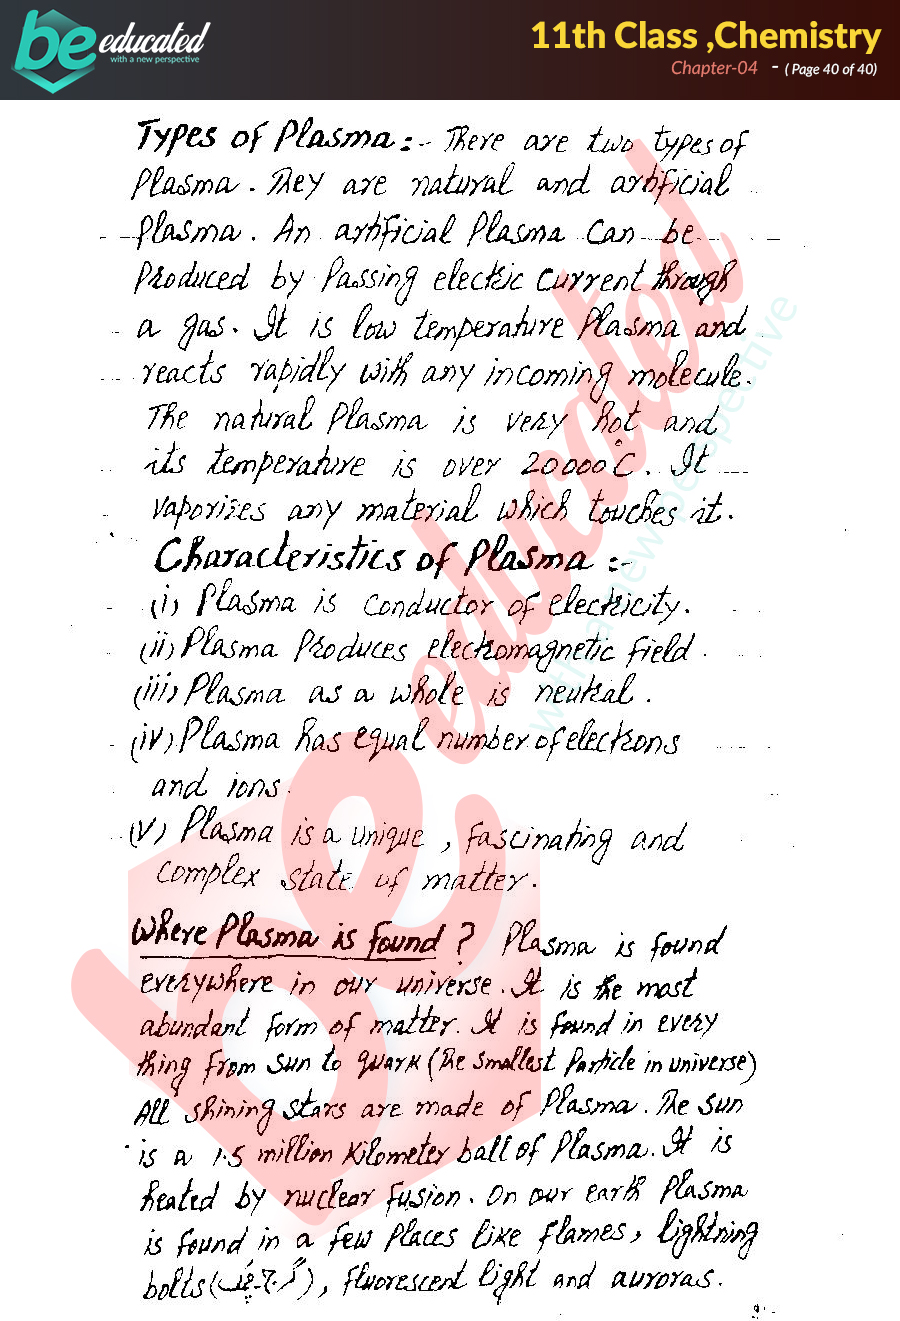 be educated
with a new perspective
11th Class ,Chemistry
Chapter-04 - ( Page 40 of 40)
Types of Plasma :- There are two types of
Plasma. They are natural and artificial
Plasma. An artificial Plasma can be
Produced by Passing electric current through
a gas. It is low temperature Plasma and
reacts rapidly with any incoming molecule.
The natural Plasma is very hot and
its temperature is over 20000°C. It
vaporizes any material which touches it.
Characteristics of Plasma :-
(i) Plasma is conductor of electricity.
(ii) Plasma Produces electromagnetic field.
(iii) Plasma as a whole is neutral.
(iv) Plasma has equal number of electrons
and ions.
(v) Plasma is a unique, fascinating and
complex state of matter.
Where Plasma is found ? Plasma is found
everywhere in our universe. It is the most
abundant form of matter. It is found in every
thing from sun to quark (The smallest Particle in universe)
All shining stars are made of Plasma. The sun
is a 1.5 million Kilometer ball of Plasma. It is
heated by nuclear fusion. On our earth Plasma
is found in a few Places like flames, lightning
bolts ( ), fluorescent light and auroras.
be educated
with a new perspective